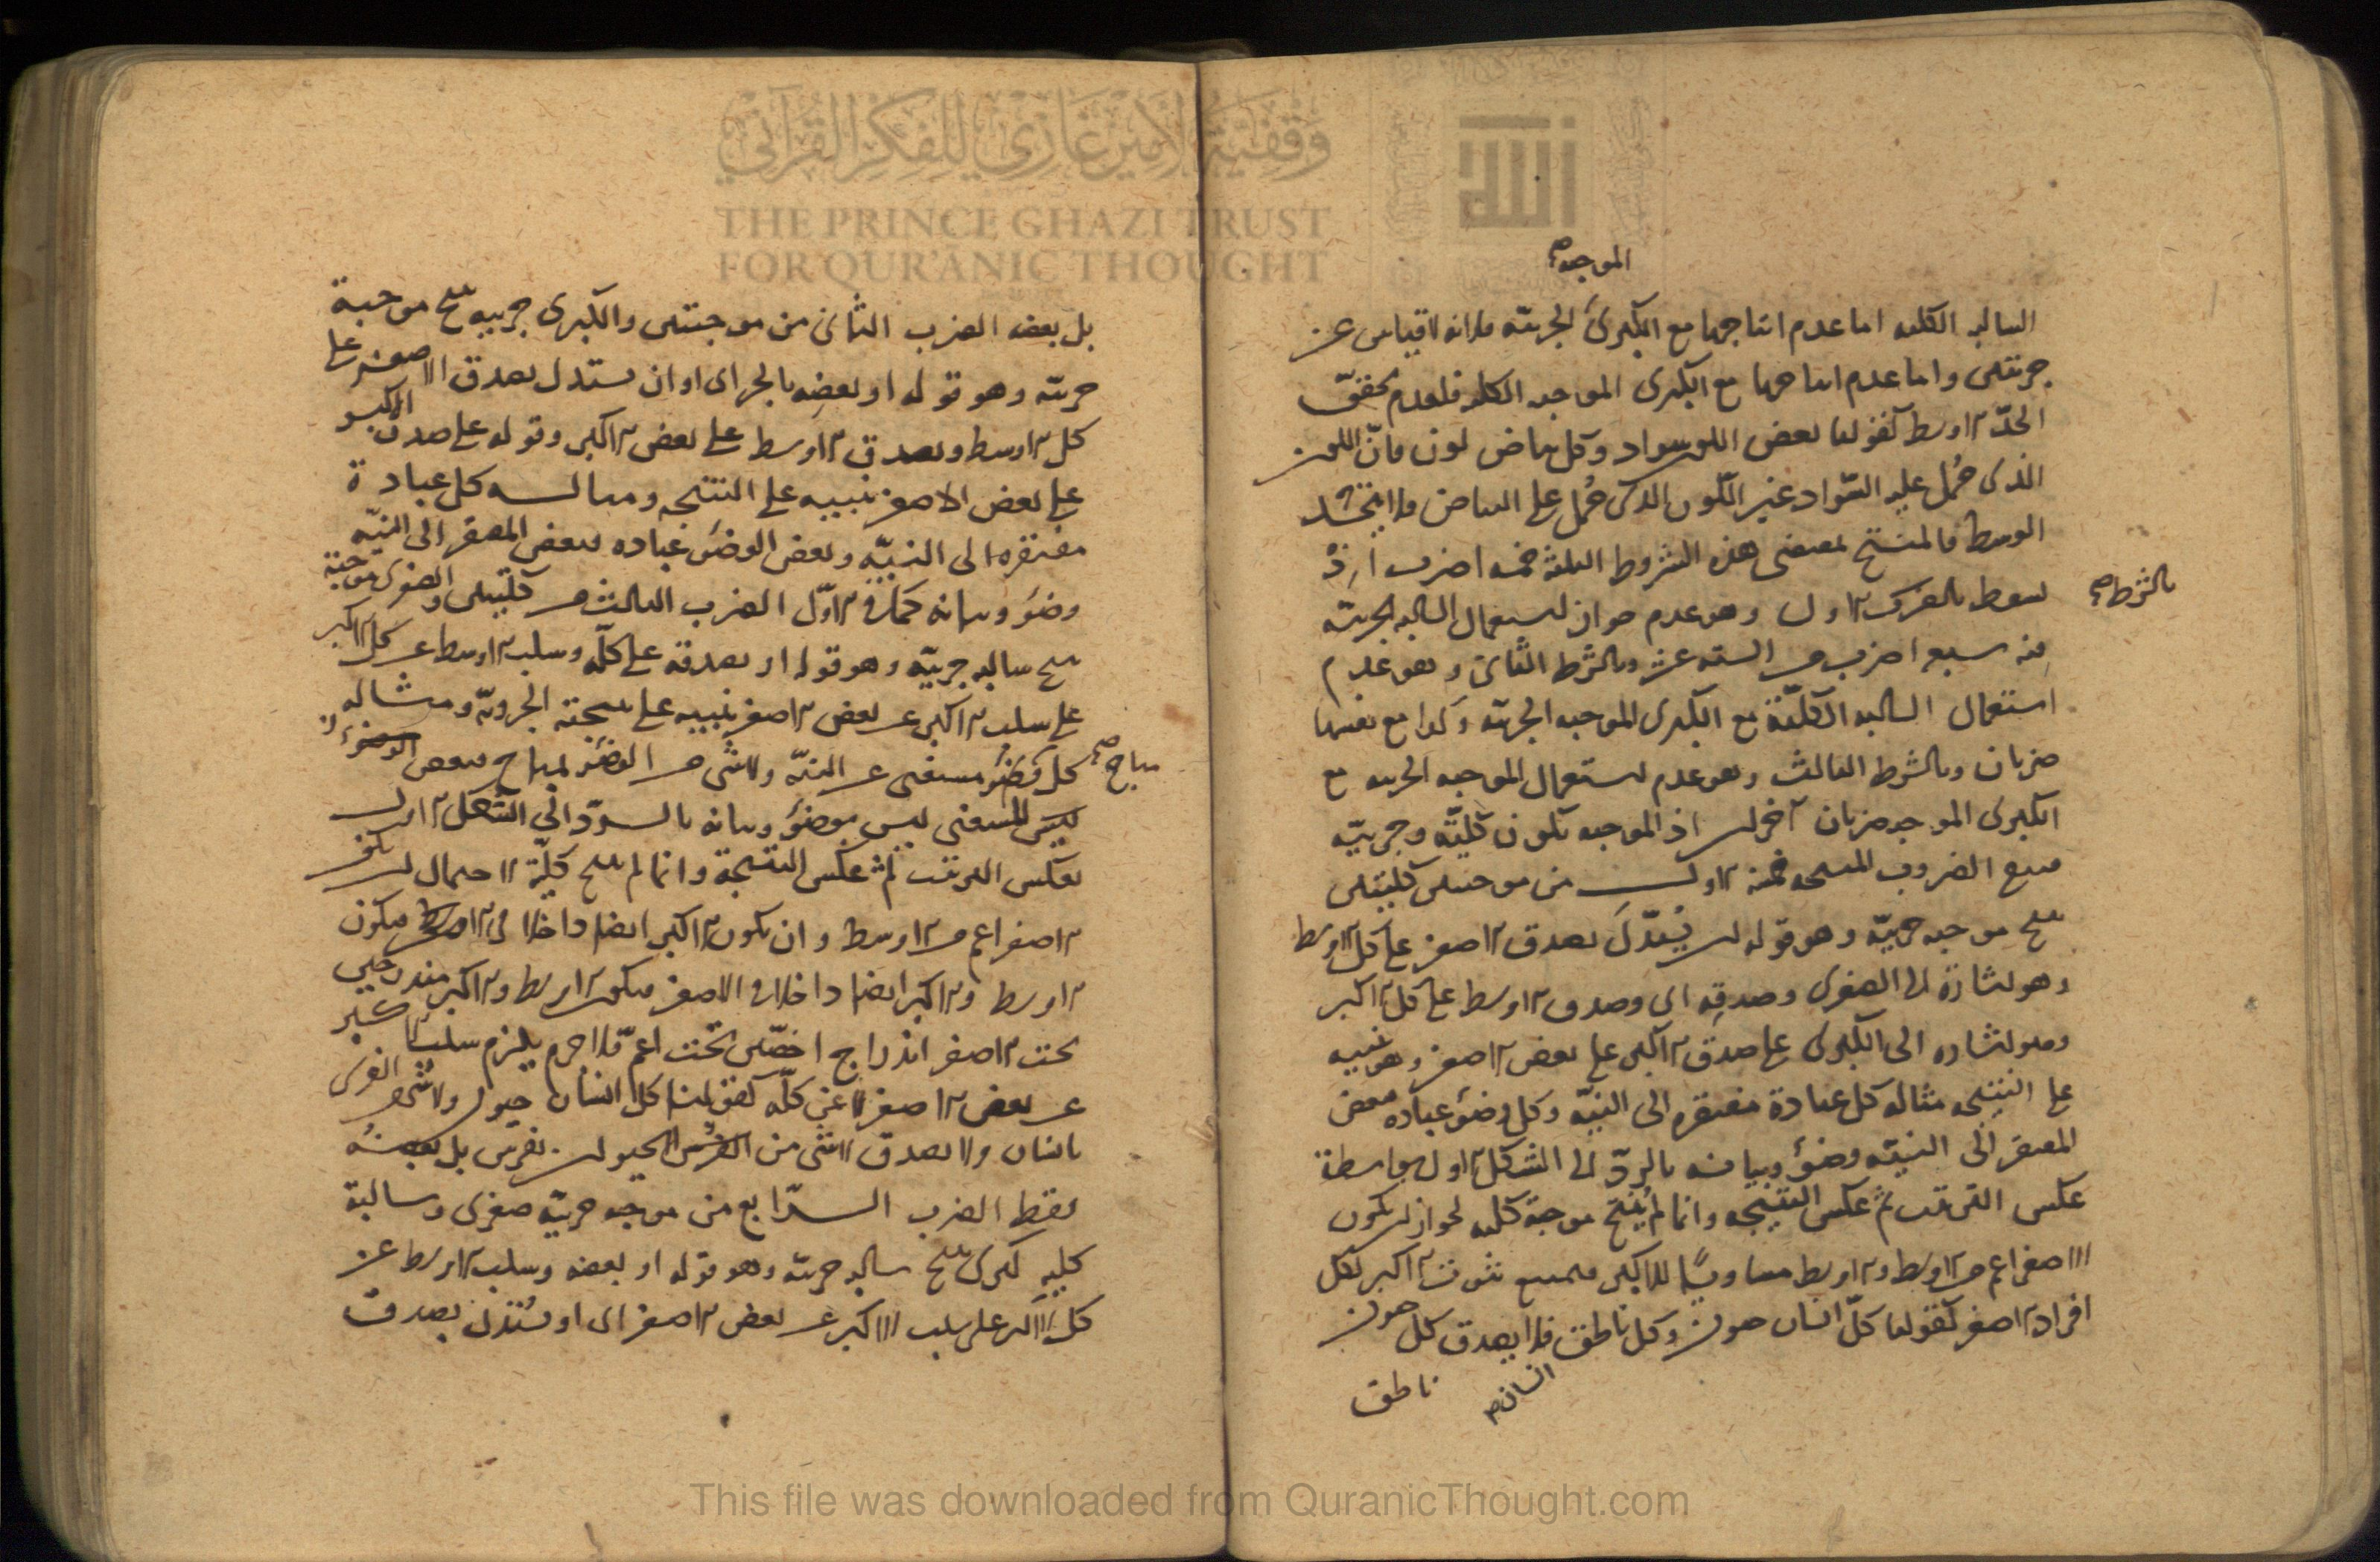 وقفية الأمير غازي للفكر القرآني
THE PRINCE GHAZI TRUST
FOR QUR'ANIC THOUGHT
الموجبه صح
السالبه الكليه اما عدم انتاجها مع الكبرى الجزئيّه فلانه لا قياس عن
جزئيتين واما عدم انتاجها مع الكبرى الموجبه الكليه فلعدم تحقق
الحدّ الاوسط كقولنا بعض اللون سواد وكل بياض لون فانّ اللون
الذى حُمل عليه السّواد غير اللّون الذى حُمل على البياض فلا يتّحد
الوسط فالمنتج بمقتضى هذه الشروط الثلثة خمسه اضرب اذ
يسقط بالشرط الاول وهو عدم جواز استعمال السالبه الجزئيّه
بالشرط صح
فيه سبعه اضرب من الستة عشر وبالشرط الثانى وهو عدم
استعمال السالبه الكليّة مع الكبرى الموجبه الجزئيّه وكذا مع نفسها
ضربان وبالشرط الثالث وهو عدم استعمال الموجبه الجزييه مع
الكبرى الموجبه ضربان آخران اذ الموجبه تكون كليّه وجزييّه
فبقى الضروب المنتجه خمسه الاول من موجبتين كليتين
ينتج موجبه جزييّه وهو قوله ان يُستدل بصدق الاصغر على كل الاوسط
وهو اشارة الى الصغرى وصدقه اى وصدق الاوسط على كل الاكبر
وهو اشاره الى الكبرى على صدق الاكبر على بعض الاصغر وهو تنبيه
على النتيجه مثاله كل عبادة مفتقره الى النيّه وكل وضؤ عباده فبعض
المفتقر الى النيّه وضؤ وبيانه بالردّ الى الشكل الاول بواسطة
عكس الترتيب ثم عكس النتيجه وانما لم ينتج موجبة كليه لجواز ان يكون
الاصغر اعم من الاوسط والاوسط مساويًا للاكبر فيمتنع ثبوت الاكبر لكل
افراد الاصغر كقولنا كلّ انسان حيوان وكل ناطق فلا يصدق كل حيوان
انسان صح
ناطق
بل بعضه الضرب الثانى من موجبتين والكبرى جزييه ينتج موجبة
جزئيّه وهو قوله او بعضِه بالجر اى او ان يستدل بصدق الاصغر على
كل الاوسط وبصدق الاوسط على بعض الاكبر وقوله على صدق الاكبر
على بعض الاصغر تنبيه على النتيجه ومثاله كل عبادة
مفتقره الى النيّه وبعض الوضؤ عباده فبعض المفتقر الى النيّه
وضؤ وبيانه كما فى الاوّل الضرب الثالث من كليتين والصغرى موجبة
ينتج سالبه جزييّه وهو قوله او بصدقه على كلّه وسلب الاوسط عن كل الاكبر
على سلب الاكبر عن بعض الاصغر تنبيه على نتيجته الجزويّه ومثاله
كل وضؤ مستغنى عن النيّه ولا شى من الوضؤ بمباح فبعض
مباح صح
المستغنى ليس بوضؤ وبيانه بالردّ الى الشكل الاول
بعكس الترتيب ثم عكس النتيجة وانما لم ينتج كليّة لاحتمال ان يكون
الاصغر اعم من الاوسط وان يكون الاكبر ايضا داخلا فى الاصغر فيكون
الاوسط والاكبر ايضا داخلا فى الاصغر فيكون الاوسط والاكبر مندرجين
تحت الاصغر اندراج اخصّين تحت اعمّ فلا جرم يلزم سلب الاكبر
عن بعض الاصغر لا عن كلّه كقولنا كل انسان حيوان ولا شى من الفرس
بانسان ولا يصدق لا شى من الحيوان بفرس بل بعضُه
فقط الضرب الرّابع من موجبه جزييّه صغرى وسالبة
كليه كبرى ينتج سالبه جزئيّه وهو قوله او بعضه وسلب الاوسط عن
كل الاكبر على سلب الاكبر عن بعض الاصغر اى او يُستدل بصدق
This file was downloaded from QuranicThought.com